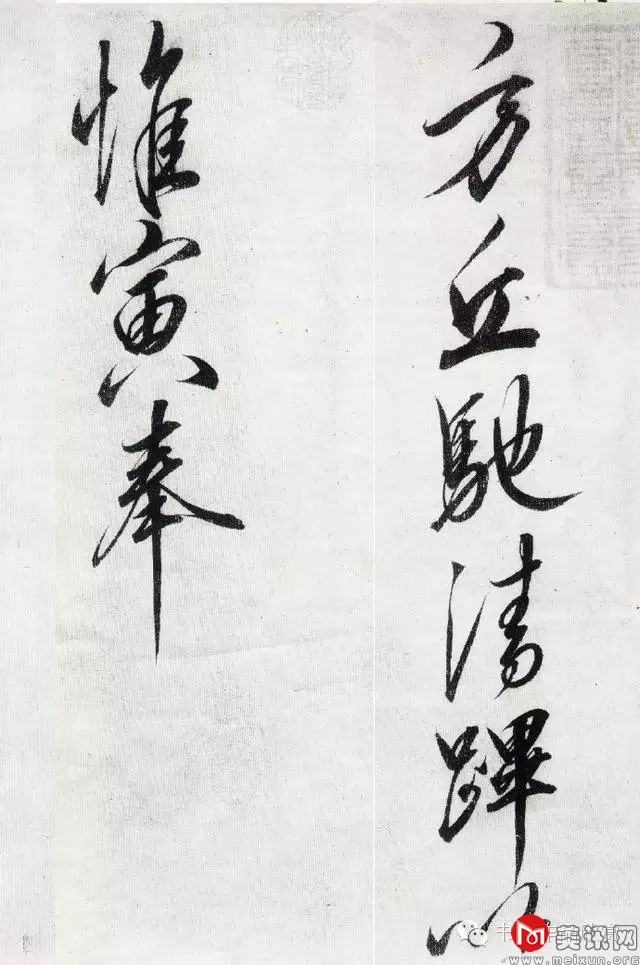 方丘馳清蹕
惟寅奉
美讯网
www.meixun.org